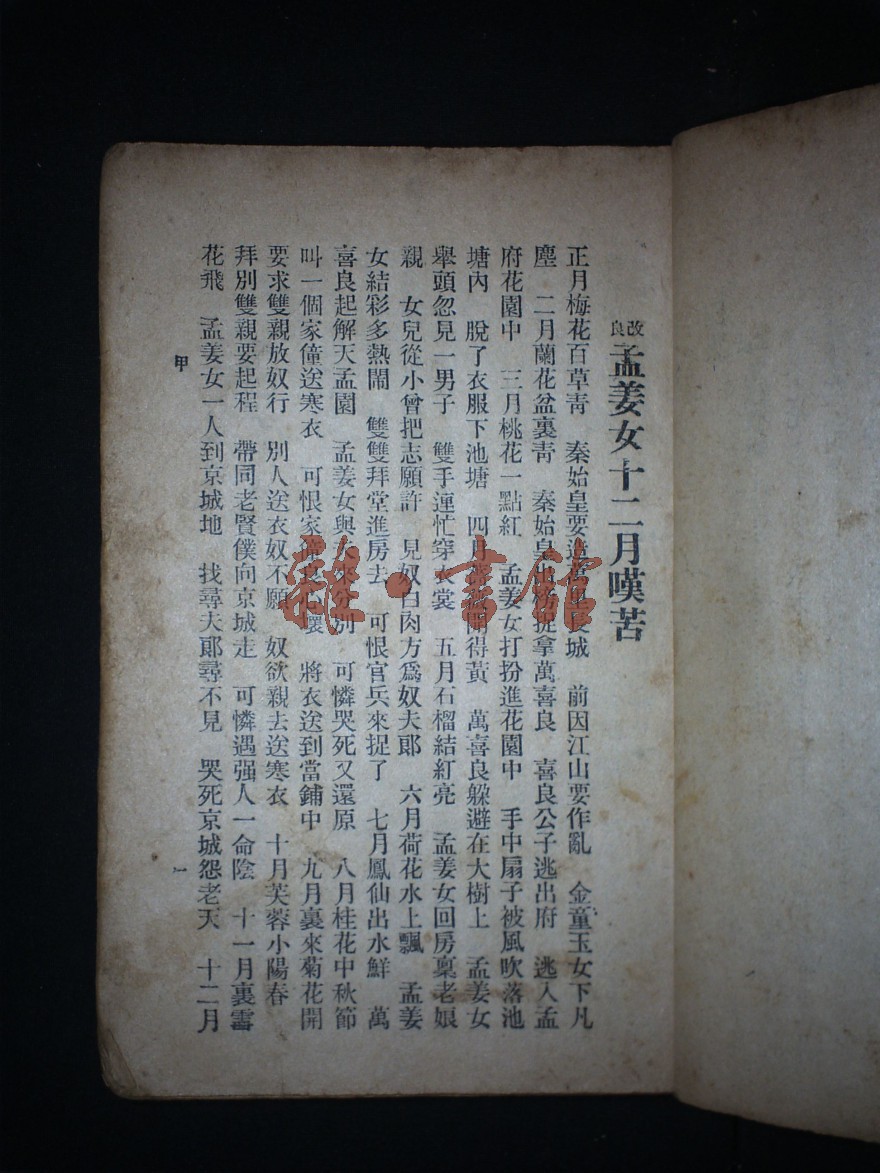 改良
孟姜女十二月嘆苦
正月梅花百草青　秦始皇要造萬里長城　前因江山要作亂　金童玉女下凡
塵　二月蘭花盆裏青　秦始皇出榜捉拿萬喜良　喜良公子逃出府　逃入孟
府花園中　三月桃花一點紅　孟姜女打扮進花園中　手中扇子被風吹落池
塘內　脫了衣服下池塘　四月薔薇開得黃　萬喜良躲避在大樹上　孟姜女
舉頭忽見一男子　雙手連忙穿衣裳　五月石榴結紅亮　孟姜女回房稟老娘
親　女兒從小曾把志願許　見奴白肉方爲奴夫郞　六月荷花水上飄　孟姜
女結彩多熱鬧　雙雙拜堂進房去　可恨官兵來捉了　七月鳳仙出水鮮　萬
喜良起解天孟園　孟姜女與夫來分別　可憐哭死又還原　八月桂花中秋節
叫一個家僮送寒衣　可恨家僮良心壞　將衣送到當鋪中　九月裏來菊花開
要求雙親放奴行　別人送衣奴不願　奴欲親去送寒衣　十月芙蓉小陽春
拜別雙親要起程　帶同老賢僕向京城走　可憐遇强人一命陰　十一月裏雪
花飛　孟姜女一人到京城地　找尋夫郞尋不見　哭死京城怨老天　十二月
甲
一
雜·書館